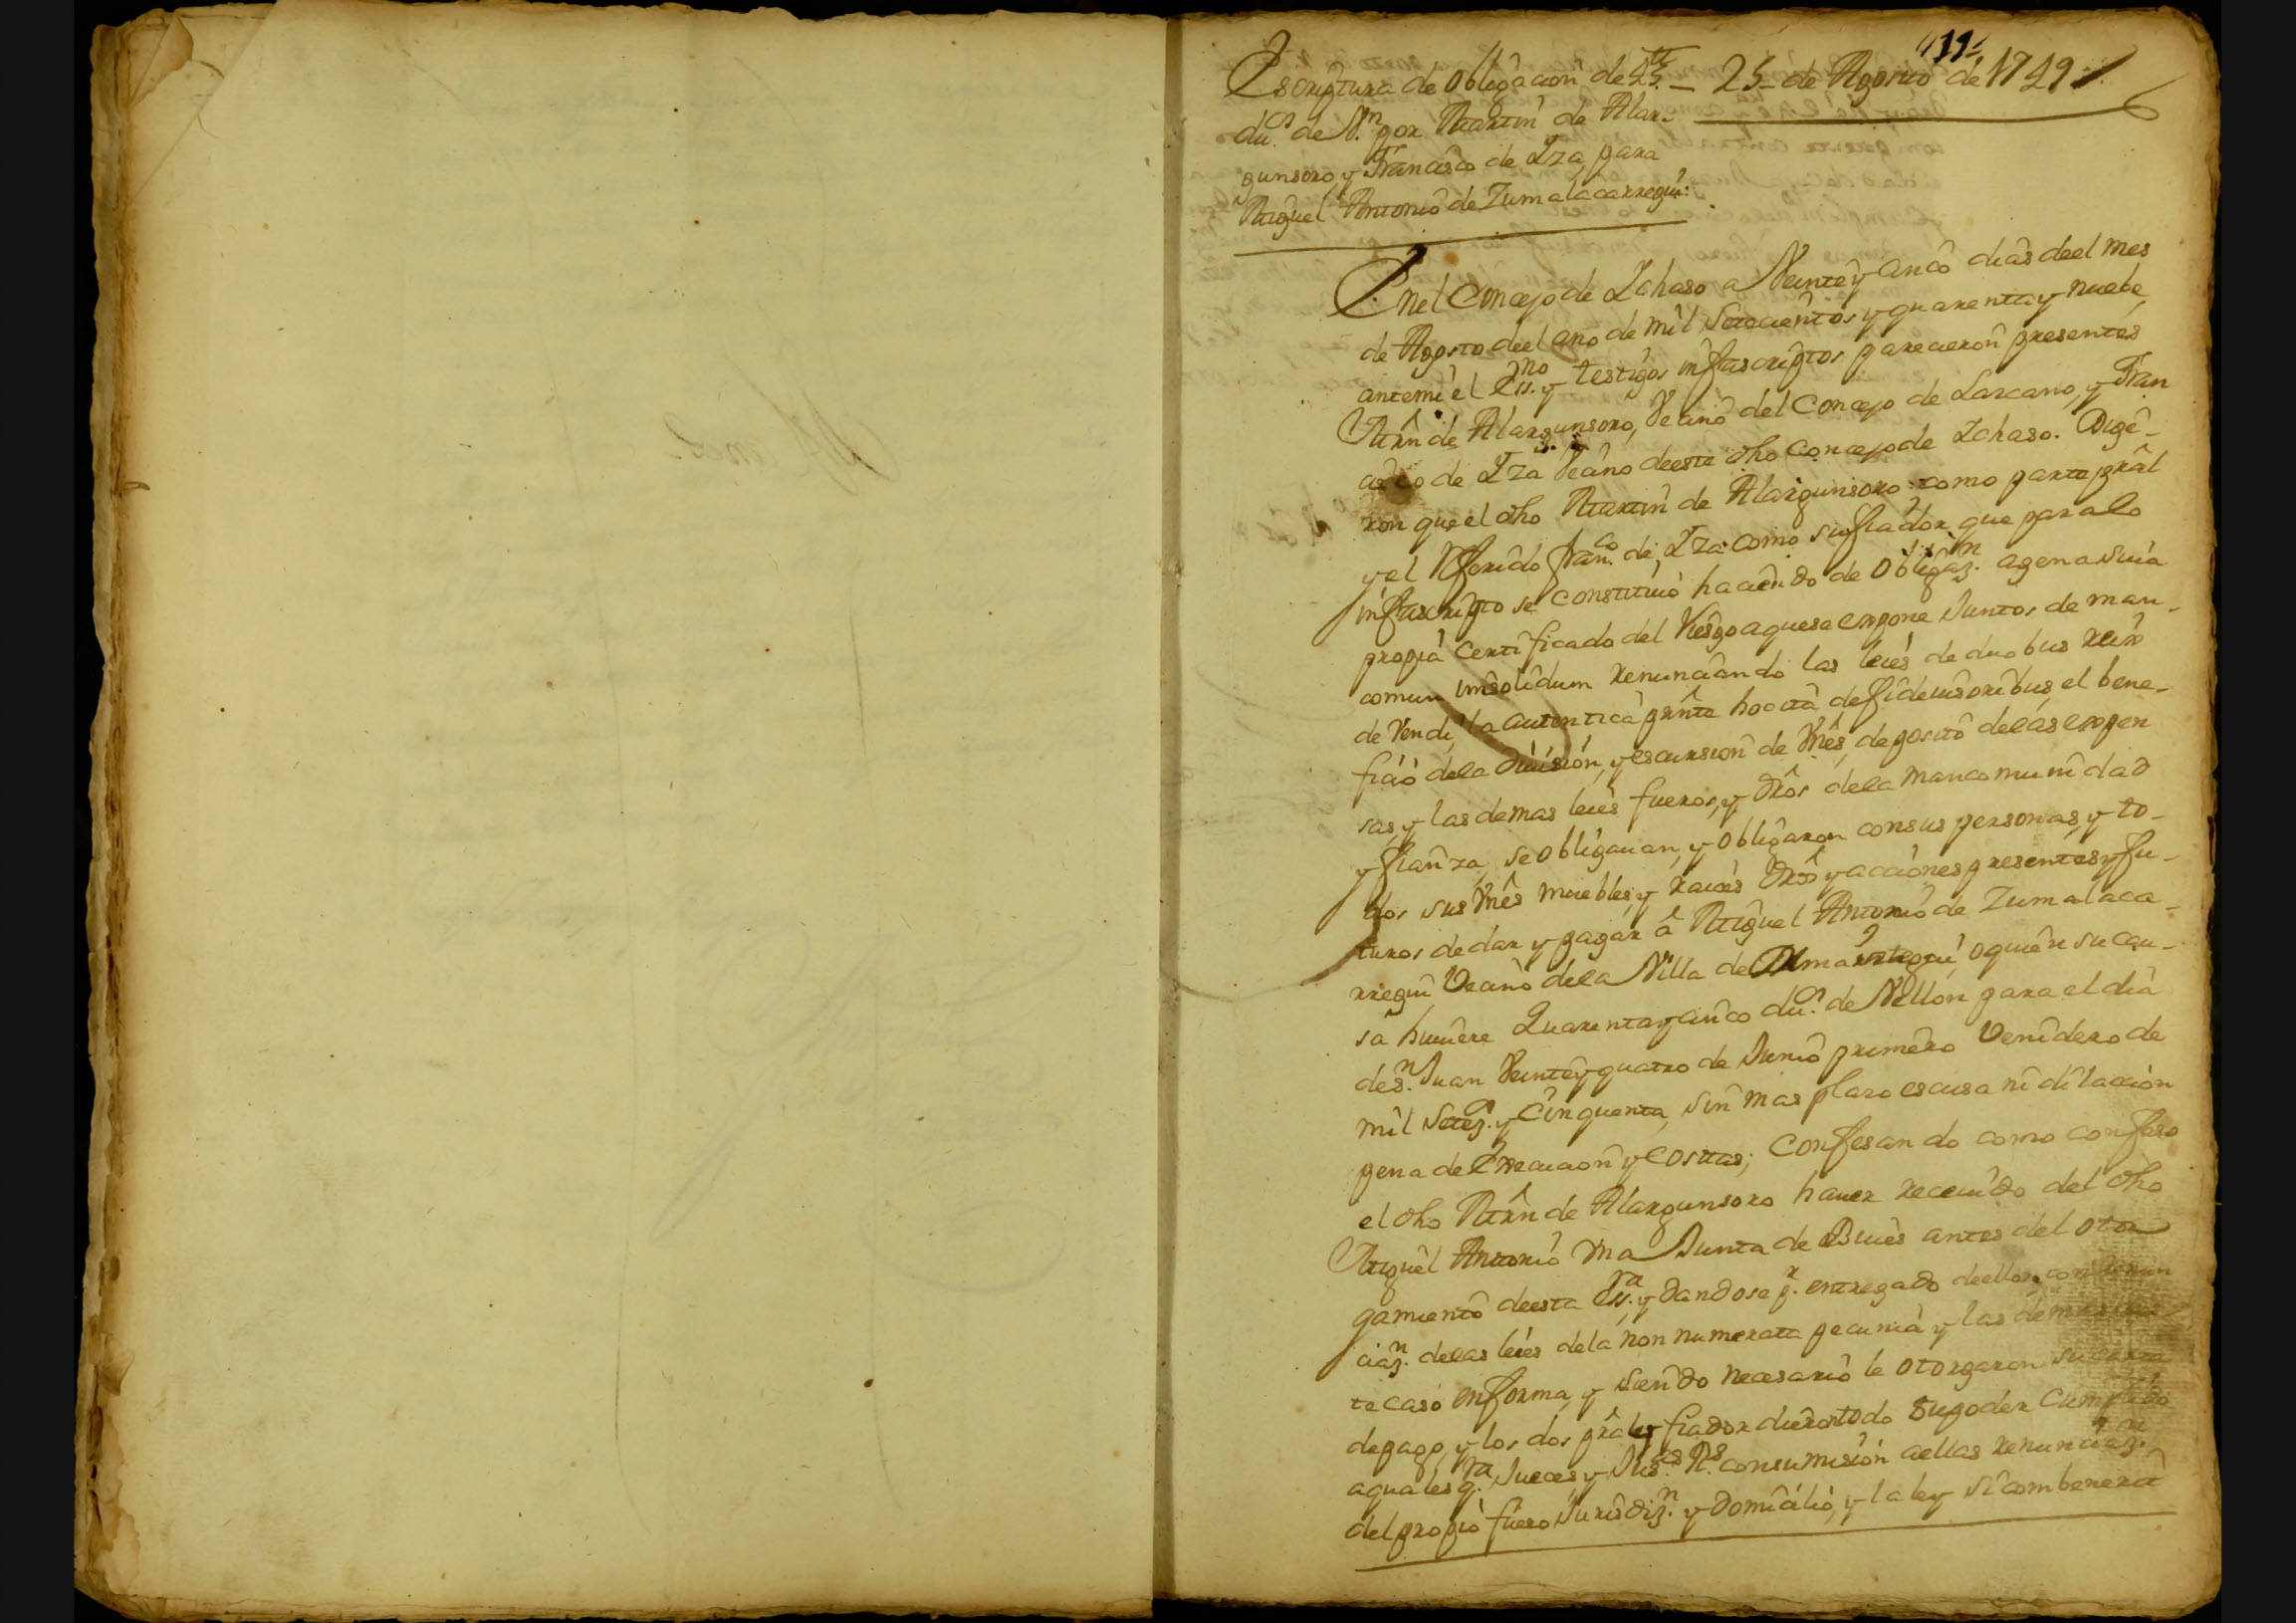 11
Escriptura de Obligacion de 45 — 25 de Agosto de 1749
du.os de V.n por Martin de Alar-
gunsoro, y Francisco de Yza para
Miguel Antonio de Zumalacarregui:
Enel Concejo de Ichaso a Veinte y cinco dias deel mes
de Agosto deel ano de mil Setecientos y quarenta y nuebe,
antemi el Ess.no y testigos infrascriptos parecieron presentes
Mrn de Alargunsoro, Vecino del Concejo de Lazcano, y Fran
cisco de Yza Vecino deeste dho Concejo de Ichaso. Dige-
ron que el dho Martin de Alargunsoro como parte prâl
y el Referido Fran.co de Yza como su fiador que para lo
infrascripto se constituió haciendo de Obligaz.n agena suia
propia Certificado del Riesgo aquese expone Juntos de man-
comun insolidum Renunciando las leies de duobus reix
de Vendi, la autentica prnte hocita de fideiusoribus, el bene-
ficio dela Diuision, y escursion de Vnes, deposito delas expen
sas, y las demas leies fueros, y Dros dela mancomunidad
y fianza, se obligauan, y obligaron consus personas, y to-
dos sus Vnes muebles, y raices Dros y acciones presentes y fu-
turos de dar y pagar â Miguel Antonio de Zumalaca-
rregui Vecino dela Villa de Ormaiztegui, o quien su cau-
sa huuiere Quarenta y cinco du.os de Vellon para el dia
de S.n Juan Veinte y quatro de Junio primero Venidero de
mil Setez.s y Cinquenta, sin mas plazo escusa ni dilacion
pena de Execucion y Costas; Confesando como confeso
el dho Mrn de Alargunsoro hauer Receuido del dho
Miguel Antonio Vna Junta de Bueis antes del otor
gamiento deesta Ess.ra y Dandose p.r entregado deellos, con Renun
ciaz.n delas leies dela non numerata pecunia y las demas
te caso enforma, y siendo necesario le otorgaron su carta
depago, y los dos prâles y fiador dieron todo su poder Cumplido
aquales q.ra Jueces, y Jus.as R.s consumision aellas Renunciaz.on
del propio fuero Jurisdiz.n y domicilio, y la ley si combenerit